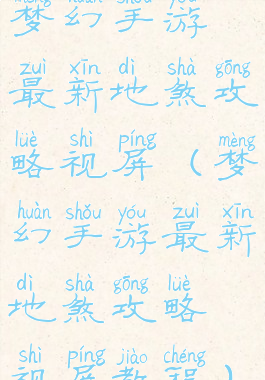 mèng huàn shǒu yóu
梦幻手游
zuì xīn dì shà gōng
最新地煞攻
lüè shì píng mèng
略视屏(梦
huàn shǒu yóu zuì xīn
幻手游最新
dì shà gōng lüè
地煞攻略
shì píng jiào chéng
视屏教程)